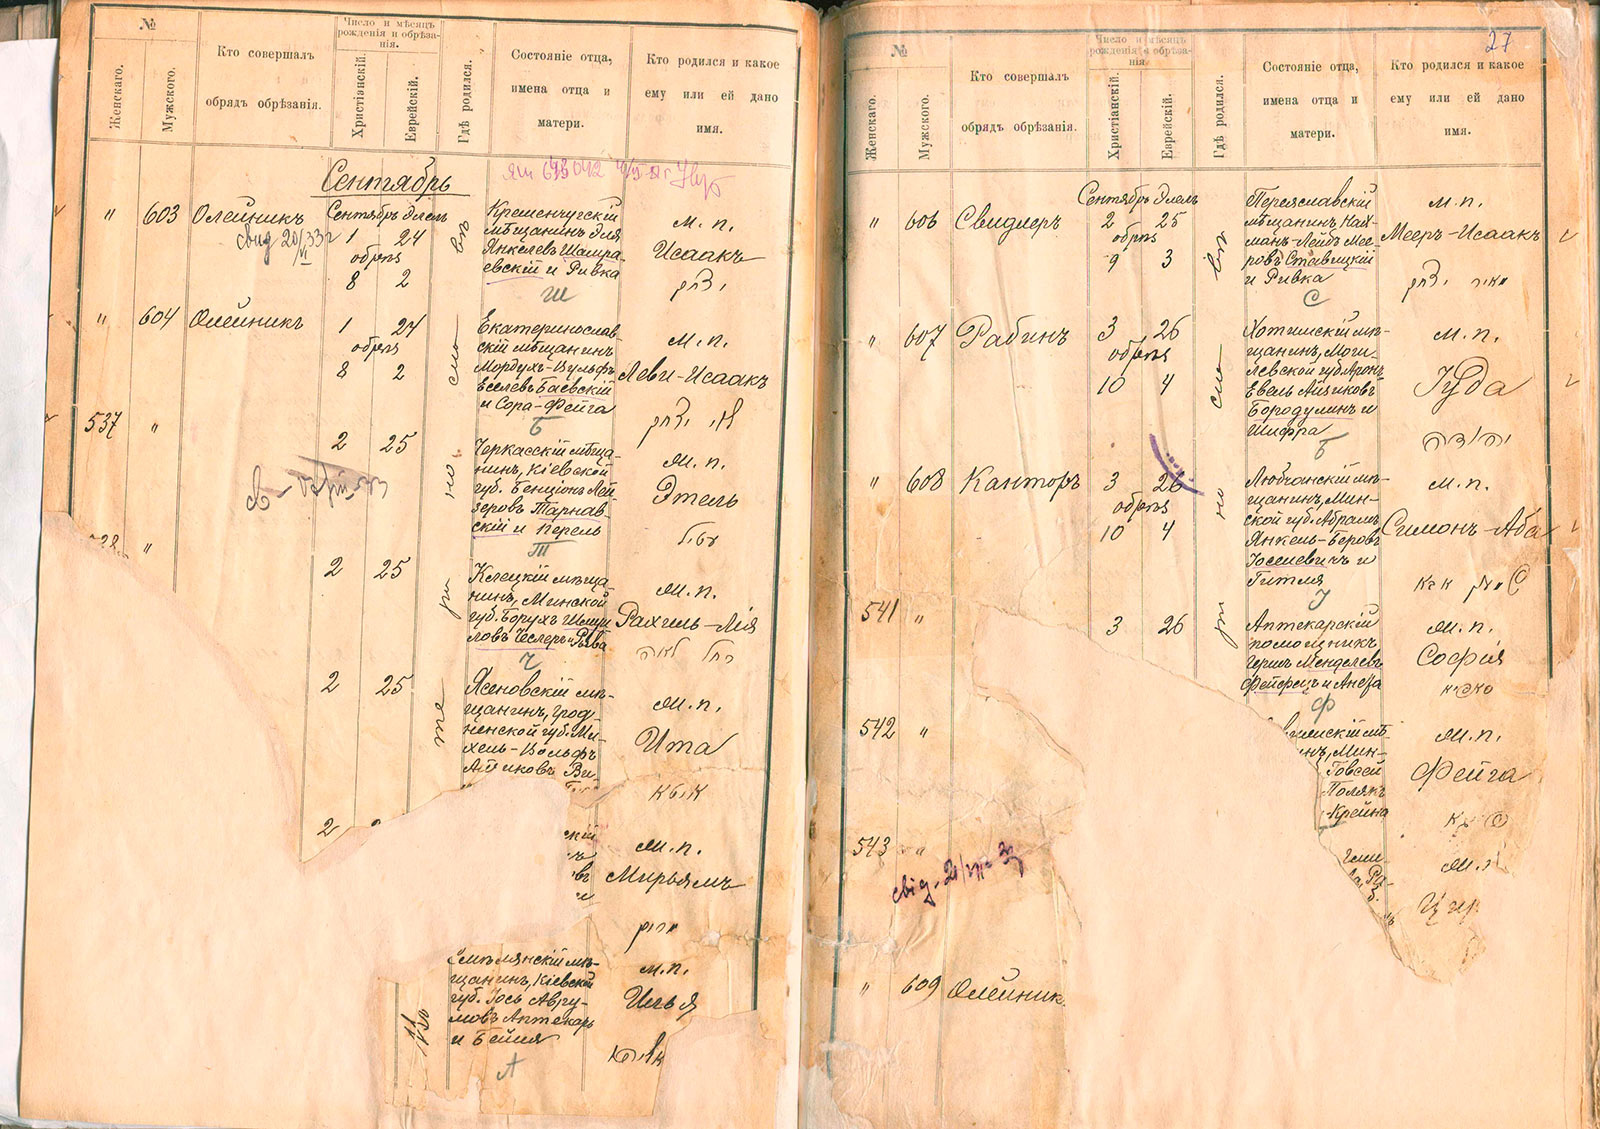 №
Женскаго.
Мужского.
Кто совершалъ
обрядъ обрѣзанія.
Число и мѣсяцъ
рожденія и обрѣза-
нія.
Христіанскій.
Еврейскій.
Гдѣ родился.
Состояніе отца,
имена отца и
матери.
Кто родился и какое
ему или ей дано
имя.
Сентябрь
"
603
Олейникъ
Сентябрь Элель
1 24
обрѣз
8 2
Кременчугскій
мѣщанинъ Эля
Янкелевъ Шамра-
евскій и Ривка
Ш
м. п.
Исаакъ
יצחק
"
604
Олейникъ
1 24
обрѣз
8 2
Екатеринослав-
скій мѣщанинъ
Мордухъ-Вульфъ
Евелевъ Баевскій
и Сора-Фейга
Б
м. п.
Леви-Исаакъ
לוי יצחק
537
"
2 25
Черкасскій мѣща-
нинъ, Кіевской
губ. Бенціонъ Лей-
зеровъ Тарнав-
скій и Перель
Т
м. п.
Этель
עטיל
"
2 25
Клецкій мѣща-
нинъ, Минской
губ. Борухъ Шмуй-
ловъ Чеслеръ и
Ч
м. п.
Рахиль-Лія
רחל לאה
2 25
Ясеновскій мѣ-
щанинъ, Грод-
ненской губ. Ми-
хель-Вольфъ
м. п.
Ита
איטא
2
м. п.
Мирьямъ
מרים
Смѣлянскій мѣ-
щанинъ, Кіевской
губ. Іось Авру-
мовъ Аптекарь
и Бейля
А
м. п.
Илья
въ
сло
но
ри
те
27
№
Женскаго.
Мужского.
Кто совершалъ
обрядъ обрѣзанія.
Число и мѣсяцъ
рожденія и обрѣза-
нія
Христіанскій.
Еврейскій.
Гдѣ родился.
Состояніе отца,
имена отца и
матери.
Кто родился и какое
ему или ей дано
имя.
"
606
Свидлеръ
Сентябрь Элель
2 25
обрѣз
9 3
Переяславскій
мѣщанинъ Нах-
манъ-Лейбъ Мее-
ровъ Ставицкій
и Ривка
С
м. п.
Мееръ-Исаакъ
מאיר יצחק
"
607
Рабинъ
3 26
обрѣз
10 4
Хотимскій мѣ-
щанинъ, Моги-
левской губ. Аронъ-
Евель Айзиковъ
Бородулинъ и
Шифра
Б
м. п.
Іуда
יהודה
"
608
Канторъ
3 26
обрѣз
10 4
Любчанскій мѣ-
щанинъ, Мин-
ской губ. Абрамъ-
Янкель-Беровъ
Іоселевичъ и
Гитля
І
м. п.
Симонъ-Аба
541
"
3 26
Аптекарскій
помощникъ
Гершъ Менделевъ
Фейфецъ и Анета
Ф
м. п.
Софія
סאפיא
542
"
Говсей
Полякъ
Крейна
м. п.
Фейга
543
"
м.
"
609
Олейник
въ
сло
но
ри